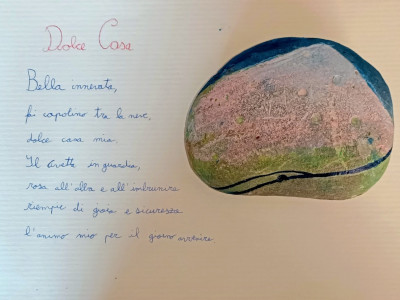 Dolce Casa
Bella innevata,
fai capolino tra la neve,
dolce casa mia.
Il Civetta in guardia,
rosa all'alba e all'imbrunire
riempie di gioia e sicurezza
l'animo mio per il giorno